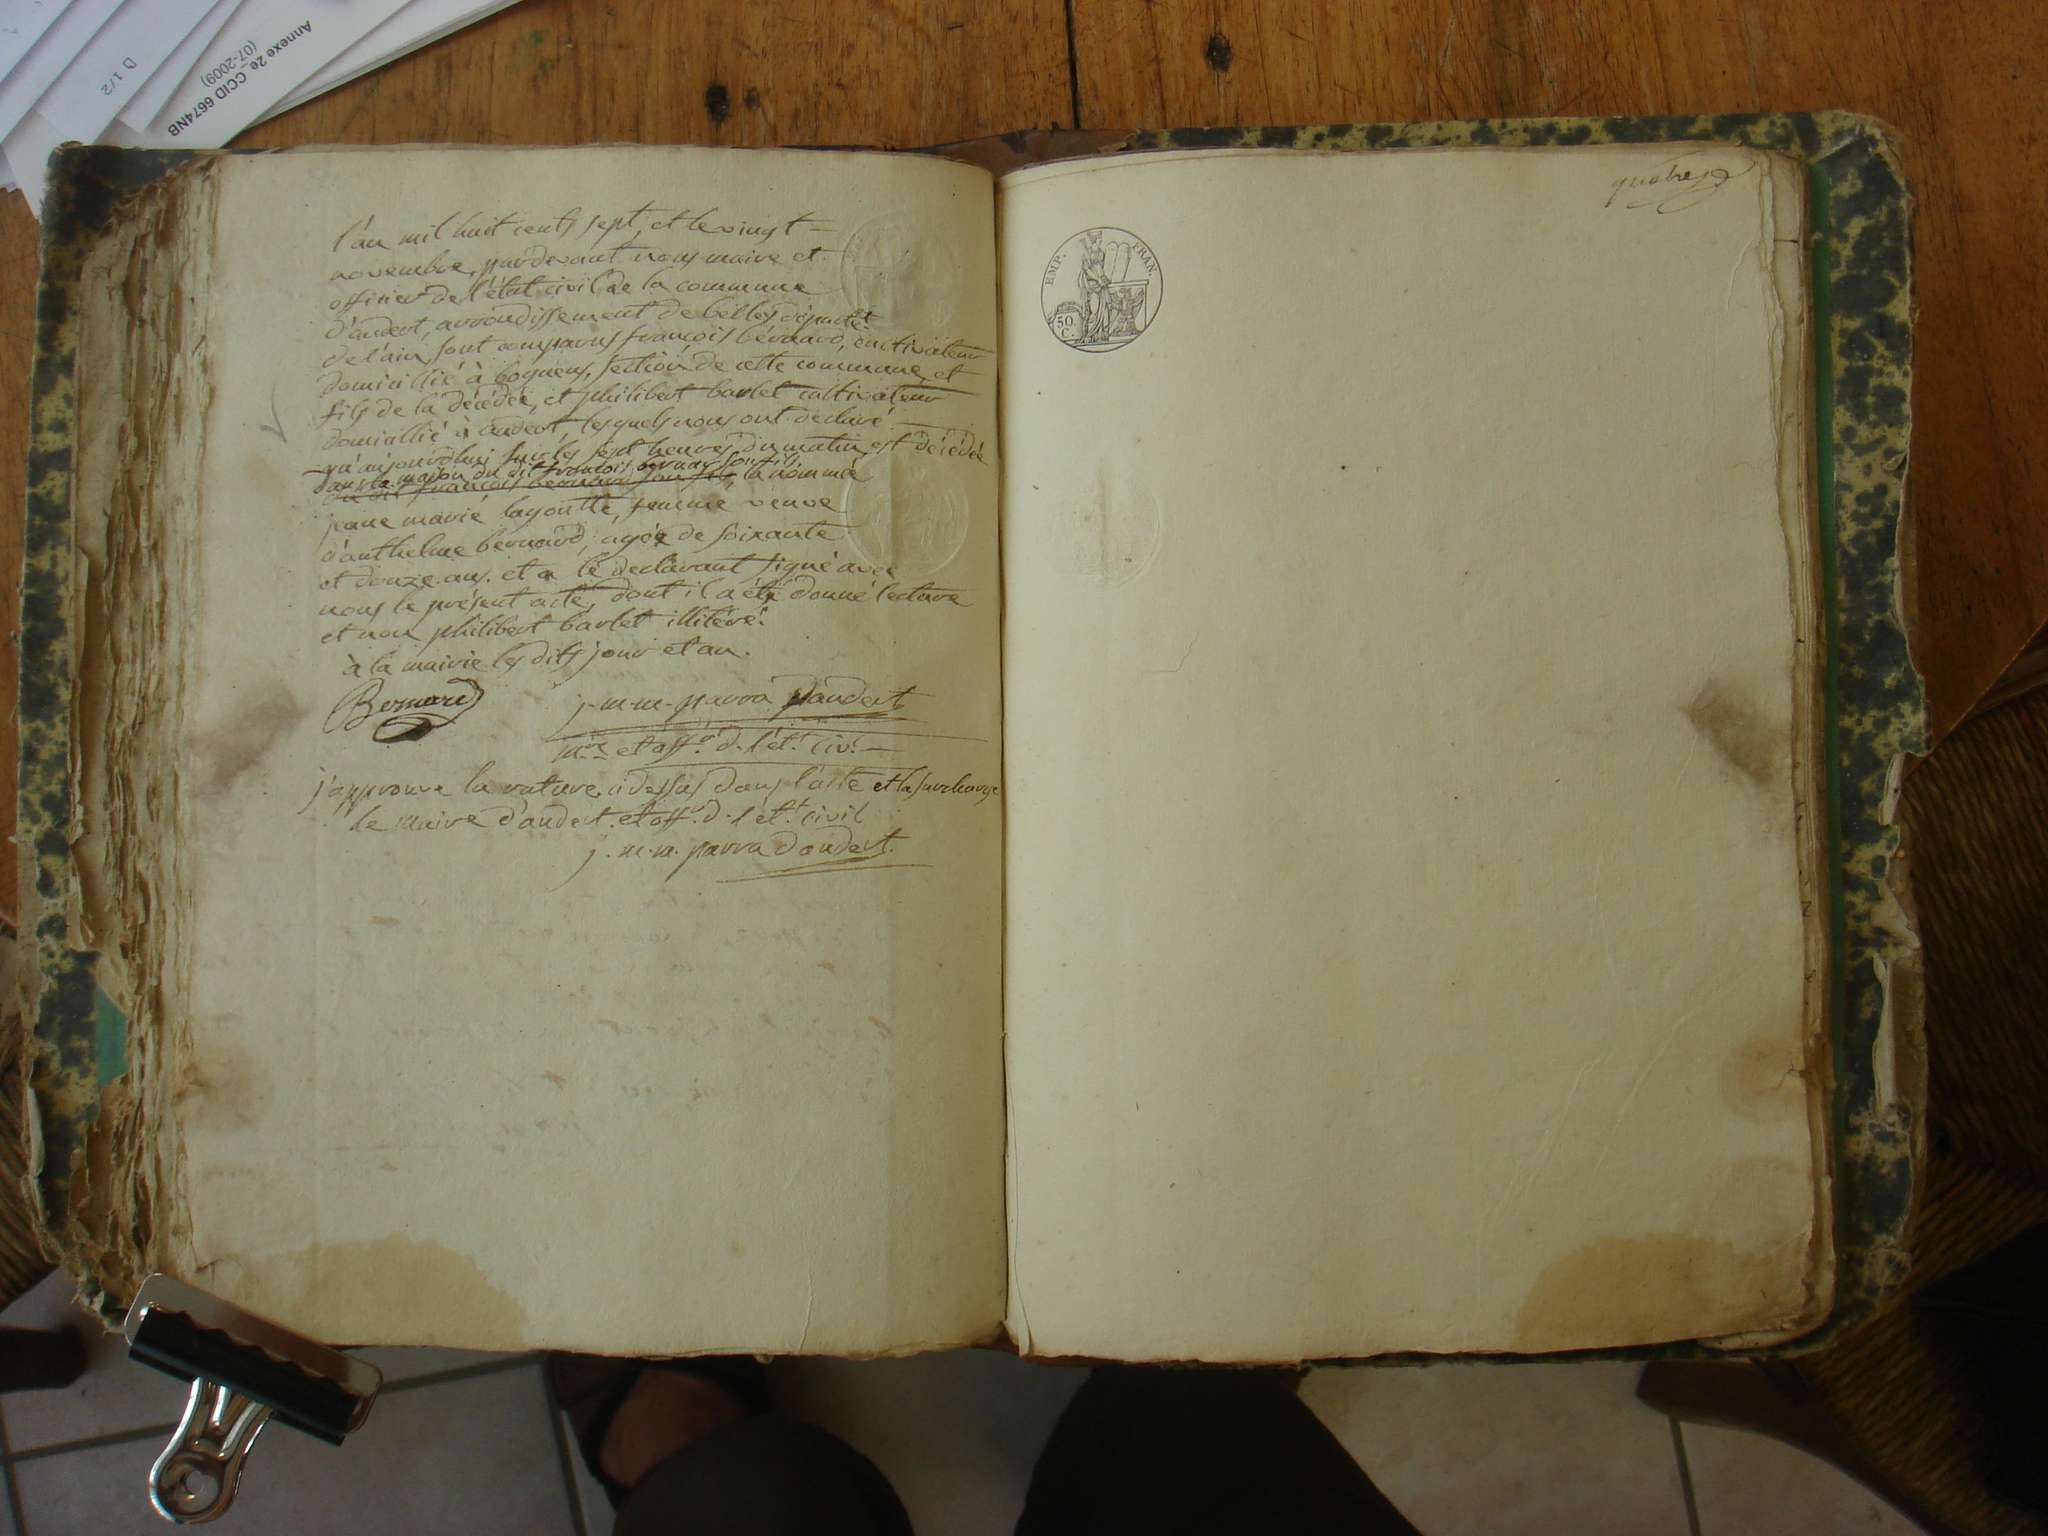 Annexe 2e_CCID 6674NB
(07-2009)
D 1/2
l'an mil huit cents sept, et le vingt
novembre, pardevant nous maire et
officier de l'état civil de la commune
d'andert, arrondissement de belley départet
de l'ain, sont comparus françois bernard, cultivateur
domicillié à bognens, section de cette commune, et
fils de la décédée, et philibert barlet cultivateur
domicillié à andert, lesquels nous ont déclaré
qu'aujourdhui sur les sept heures du matin est décédée
dans la maison du dit françois bernard son fils
du dit françois bernard son fils, la nommée
jeane marie layoutte, femme veuve
d'anthelme bernard, agée de soixante
et douze ans. et a le declarant signé avec
nous le présent acte, dont il a été donné lecture
et non philibert barlet illitéré.
à la mairie les dits jour et an.
Bernard
j. m. m. parra d'andert
mre et offr. d. l'ét.t civ.
j'approuve la rature ci dessus dans l'acte et la surcharge
le maire d'andert et offr. d. l'ét.t civil
j. m. m. parra d'andert.
EMP. FRAN.
50
C.